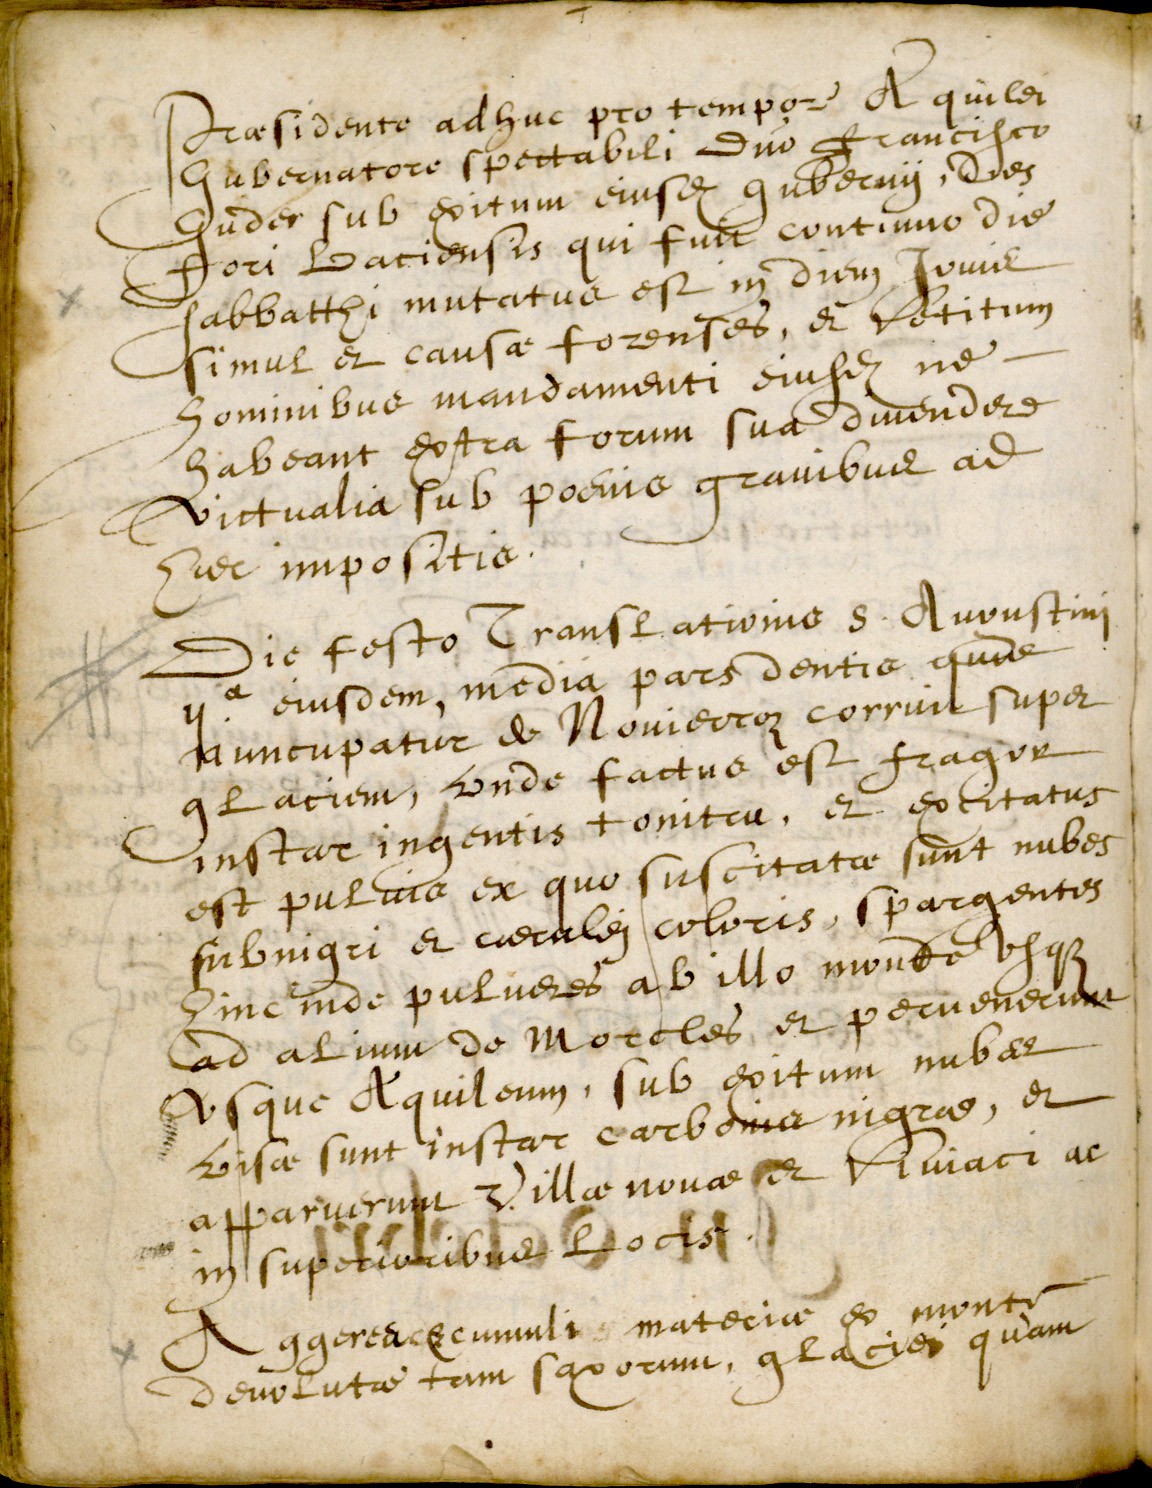 Præsidente adhuc pro tempore Aquilei
Gubernatore spectabili Dno Francisco
Guder sub exitum eiusdem gubernij, Dies
Fori Baciensis qui fuit continuo die
sabbatthi mutatus est in diem Jovis
simul et causæ forenses, et Vetitum
hominibus mandamenti eiusdem ne
habeant extra forum sua divendere
victualia sub poenis gravibus ad
hæc impositis.
Die festo Translationis S. Augustini
eiusdem, media pars dentis qui
nuncupatur de Novierroz corruit super
glaciem, Unde factus est fragor
instar ingentis tonitru, et excitatus
est pulvis ex quo suscitatæ sunt nubes
subnigri et cærulei coloris, spargentes
hinc inde pulveres ab illo monte usque
ad alium de Morcles et pervenerunt
Usque Aquileum, sub exitum nubes
visæ sunt instar carbonis nigræ, et
apparuerunt Villænovæ et Viviaci ac
in superioribus Locis.
Aggeres cumuli materiæ ex monte
devolutæ tam saxorum, glaciei quam